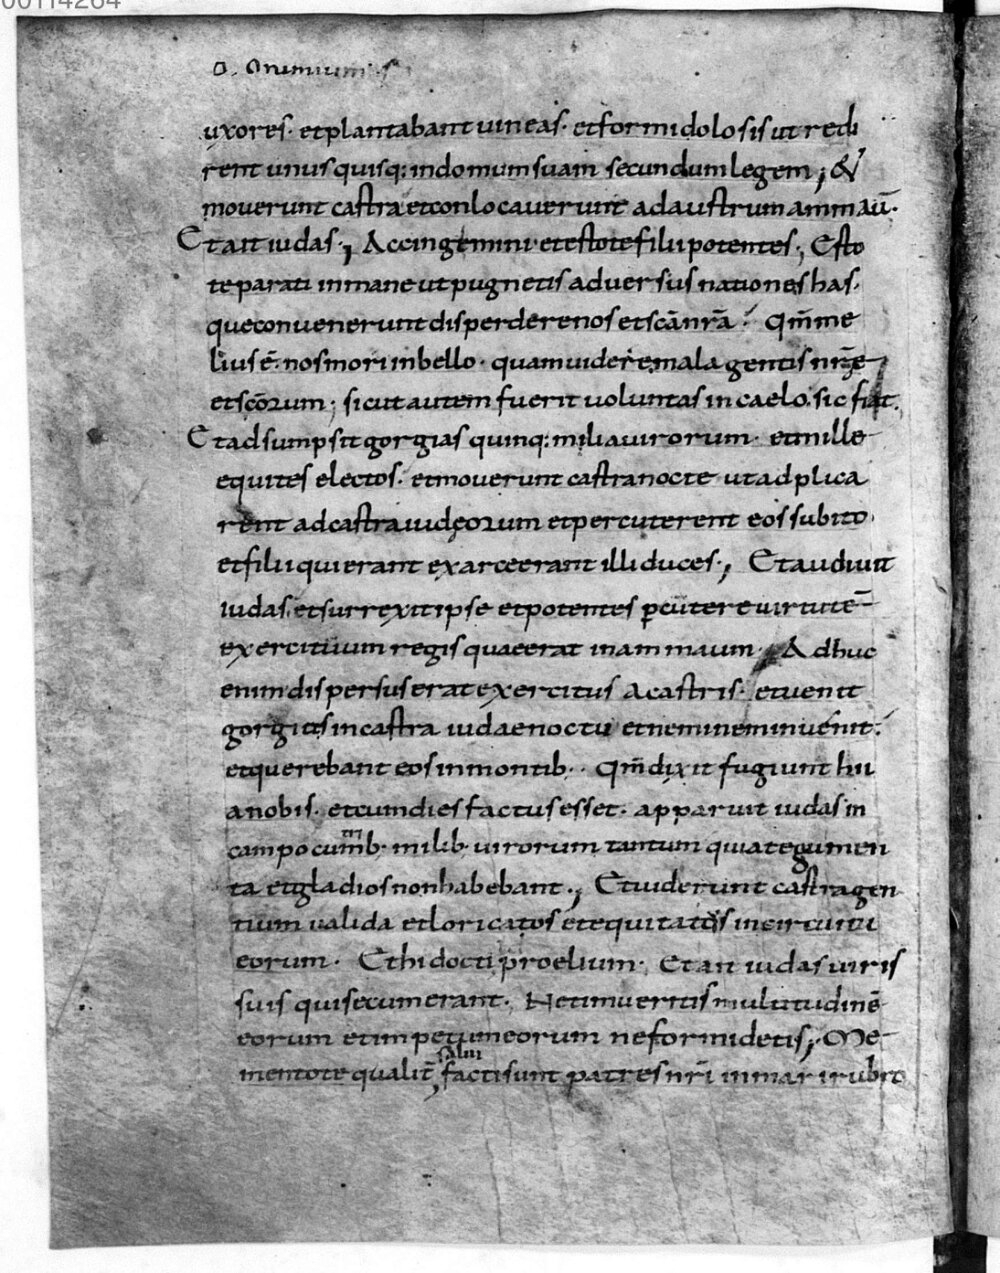 00114264
O. Omnium
uxores· et plantabant uineas· et formidolosis ut redi
rent unusquisq: in domum suam secundum legem ; &
mouerunt castra et conlocauerunt ad austrum ammaū·
Et ait iudas·; Accingemini et estote filii potentes·; Esto
te parati in mane ut pugnetis aduersus nationes has·
que conuenerunt disperdere nos et scā nr̄a· Qm̄ me
lius ē· nos mori in bello· quam uidere mala gentis nr̄ę
et scōrum ; sicut autem fuerit uoluntas in caelo· sic fiat·
Et adsumpsit gorgias quinq: milia uirorum· et mille
equites electos· et mouerunt castra nocte ut adplica
rent ad castra iudęorum et percuterent eos subito·
et filii qui erant ex arce erant illi duces·; Et audiuit
iudas· et surrexit ipse et potentes ꝑcutere uirtutē
exercituum regis quae erat in ammaum· Adhuc
enim dispersus erat exercitus a castris· et uenit
gorgias in castra iudae noctu et neminem inuenit·
et querebant eos in montib·· Qm̄ dixit fugiunt hii
a nobis· et cum dies factus esset· apparuit iudas in
campo cum m̄b· milib· uirorum tantum qui ategumen
ta et gladios non habebant·; Et uiderunt castra gen
tium ualida et loricatos et equitatus in circuitu
eorum· Et hi docti proelium· Et ait iudas uiris
suis qui secum erant· Ne timueritis multitudinē
eorum et impetum eorum ne formidetis ;· Me
mentote qualit̄ salui facti sunt patres nr̄i in mari rubro